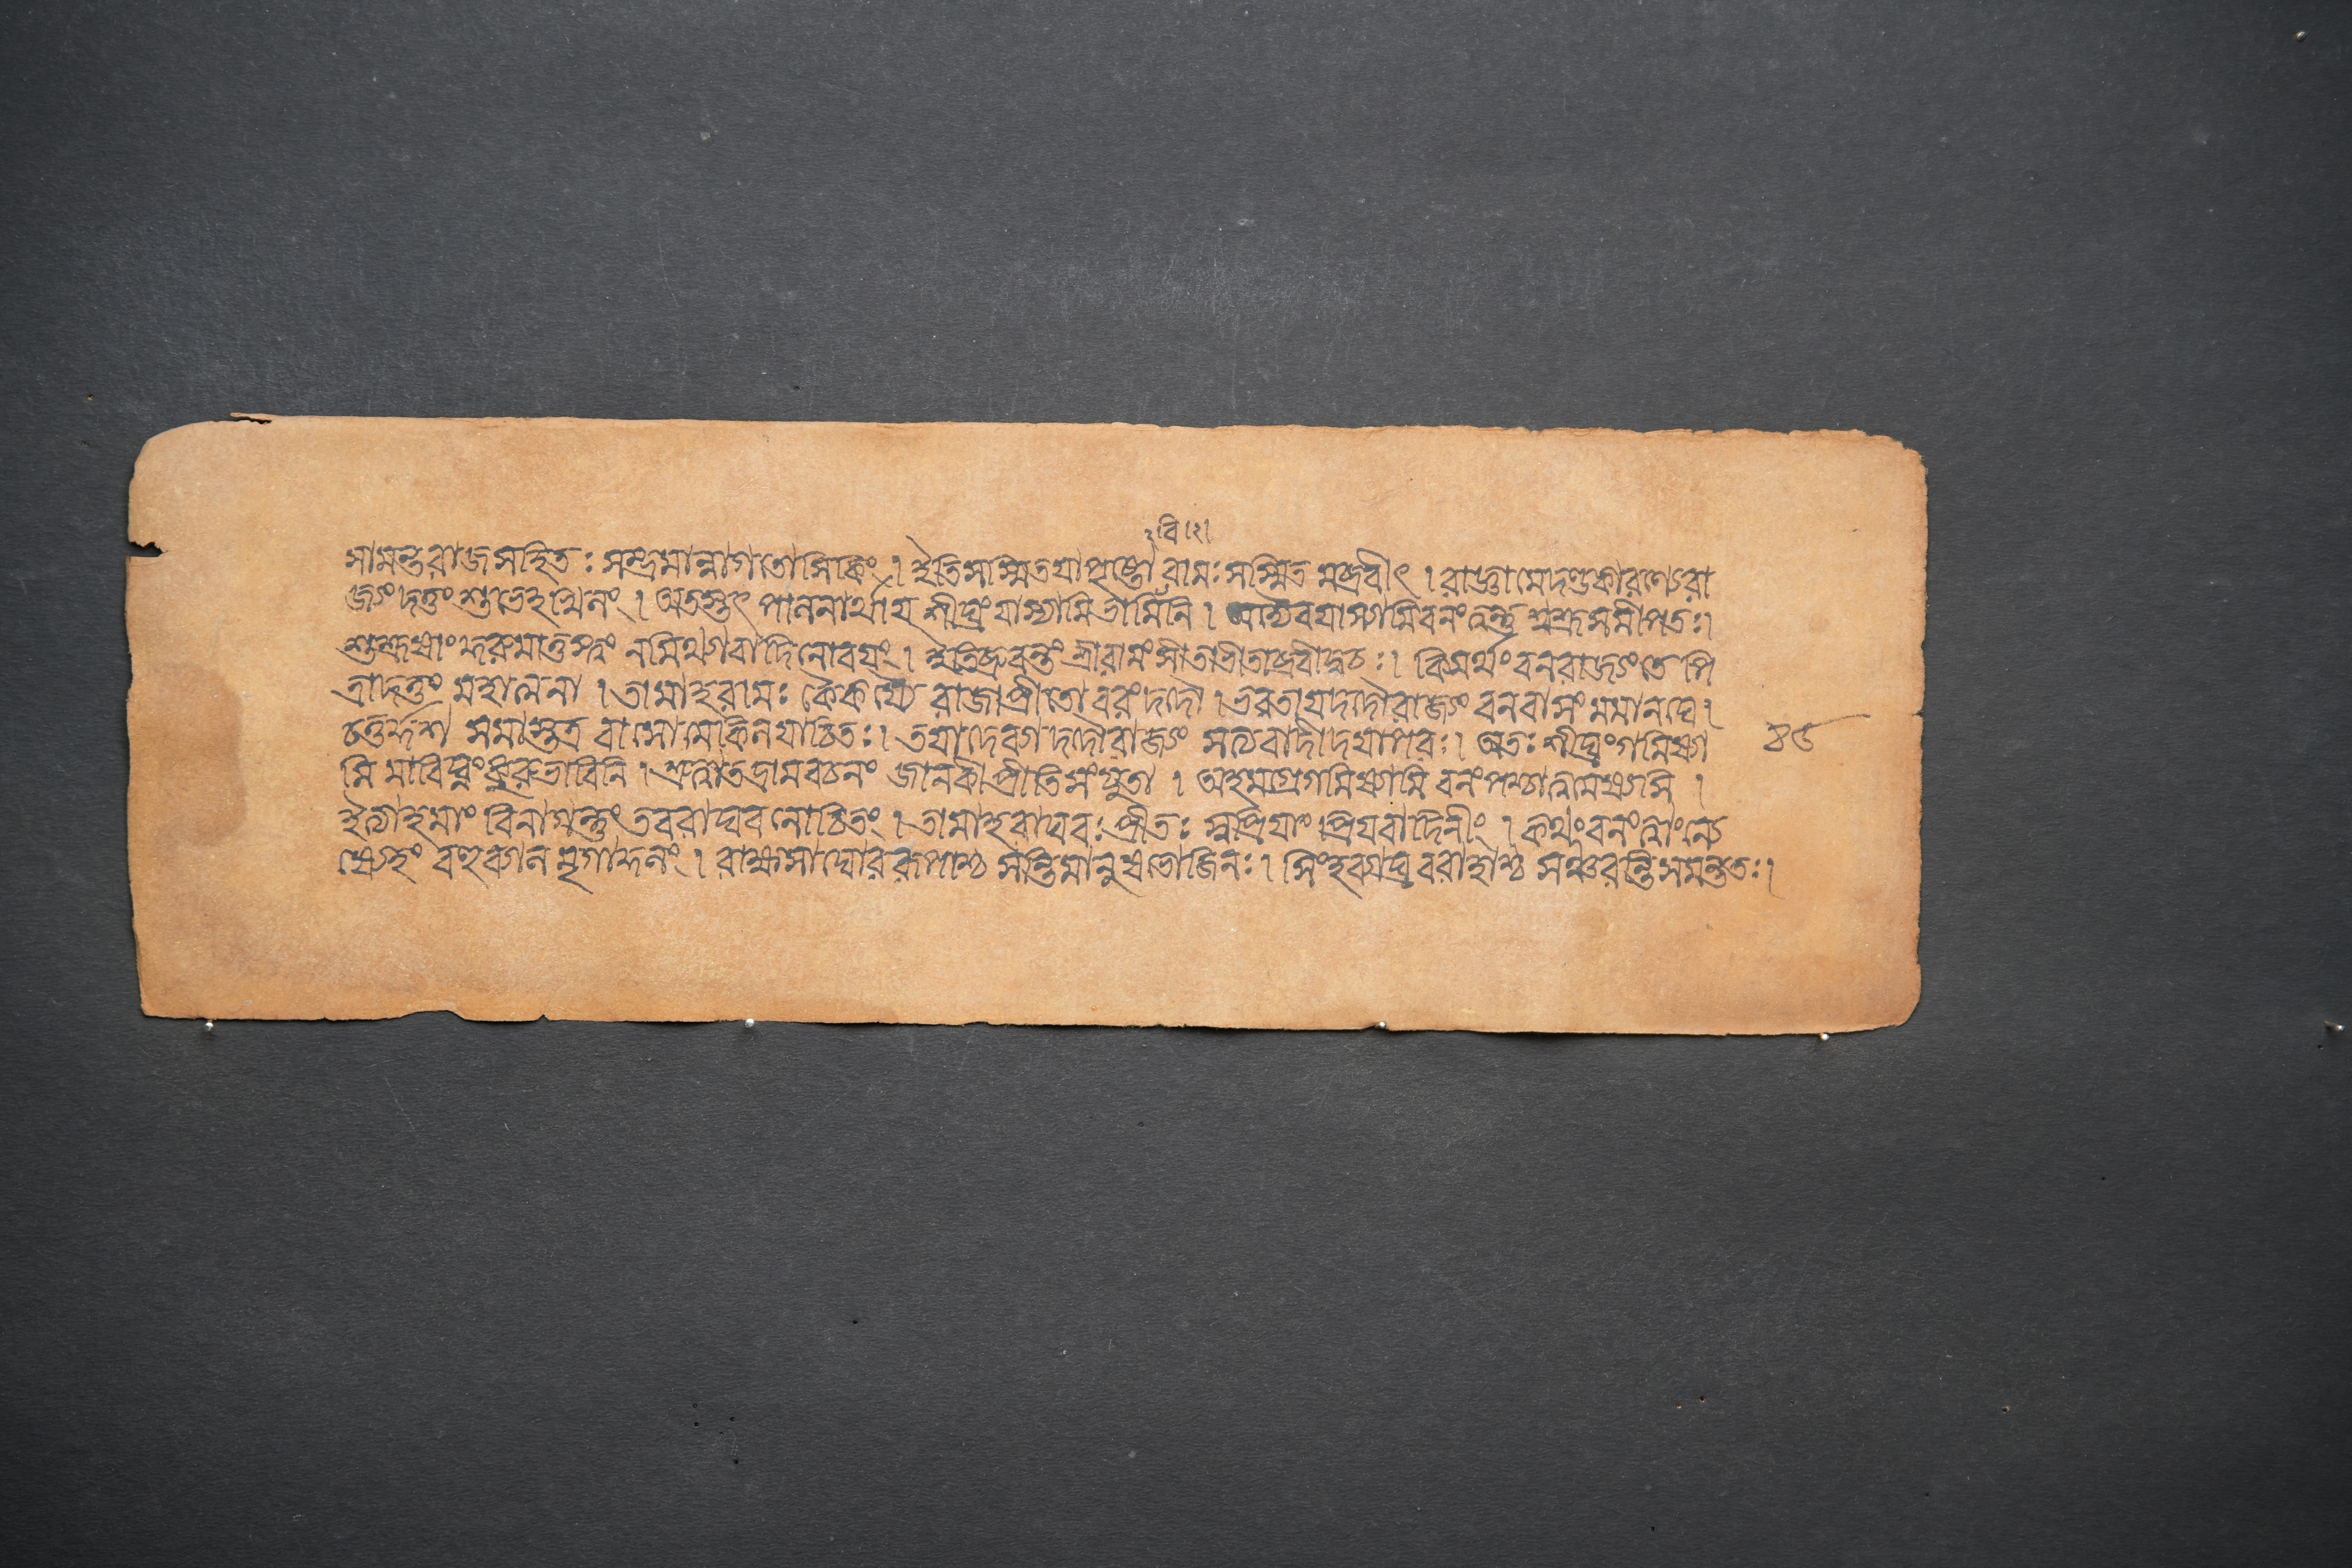 ২বি।২।
সামন্তরাজসহিতঃ সম্ভ্রমান্নাগতোসিকিং । ইতিসাস্মিতয়াপৃষ্টো রামঃ সস্মিত মব্রবীৎ । রাজ্ঞামেদণ্ডকারণ্যেরা
জ্যং দত্তং শুভেহখিলং । অতস্তৎ পালনার্থায় শীঘ্রং যাস্যামিভামিনি । অদ্যৈবযাস্যামিবনংত্বন্তু শ্বশ্রূসমীপতঃ ।
শুশ্রূষাং কুরুমাতুস্ত্বং নমিথ্যাবাদিনোবয়ং । ইতিব্রুবন্তং শ্রীরামং সীতাভীতাব্রবীদ্বচঃ । কিমর্থং বনরাজ্যংতে পি
ত্রাদত্তং মহাত্মনা । তামাহরামঃ কৈকয্যৈ রাজাপ্রীতো বরং দদৌ । ভরতায়দদৌরাজ্যং বনবাসং মমানঘে ।
চতুর্দ্দশ সমাস্তত্র বাসোমেকিলযাচিতঃ । তয়াদেব্যা দদৌরাজ্যং সত্যবাদীদয়াপরঃ । অতঃ শীঘ্রংগমিষ্যা ৪৫
মি মাবিঘ্নংকুরুভাবিনি । শ্রুত্বাতদ্রামবচনং জানকীপ্রীতিসংযুতা । অহমগ্রেগমিষ্যামি বনংপশ্চাত্ত্বমেষ্যসি ।
ইত্যাহমাং বিনাগন্তুং তবরাঘব নোচিতং । তামাহরাঘবঃ প্রীতঃ স্বপ্রিয়াং প্রিয়বাদিনীং । কথংবনংত্বাংনে
ষ্যেহং বহুব্যাল মৃগাকুলং । রাক্ষসাঘোররূপাশ্চ সন্তিমানুষভোজিনঃ । সিংহব্যাঘ্রবরাহাশ্চ সঞ্চরন্তিসমন্ততঃ ।